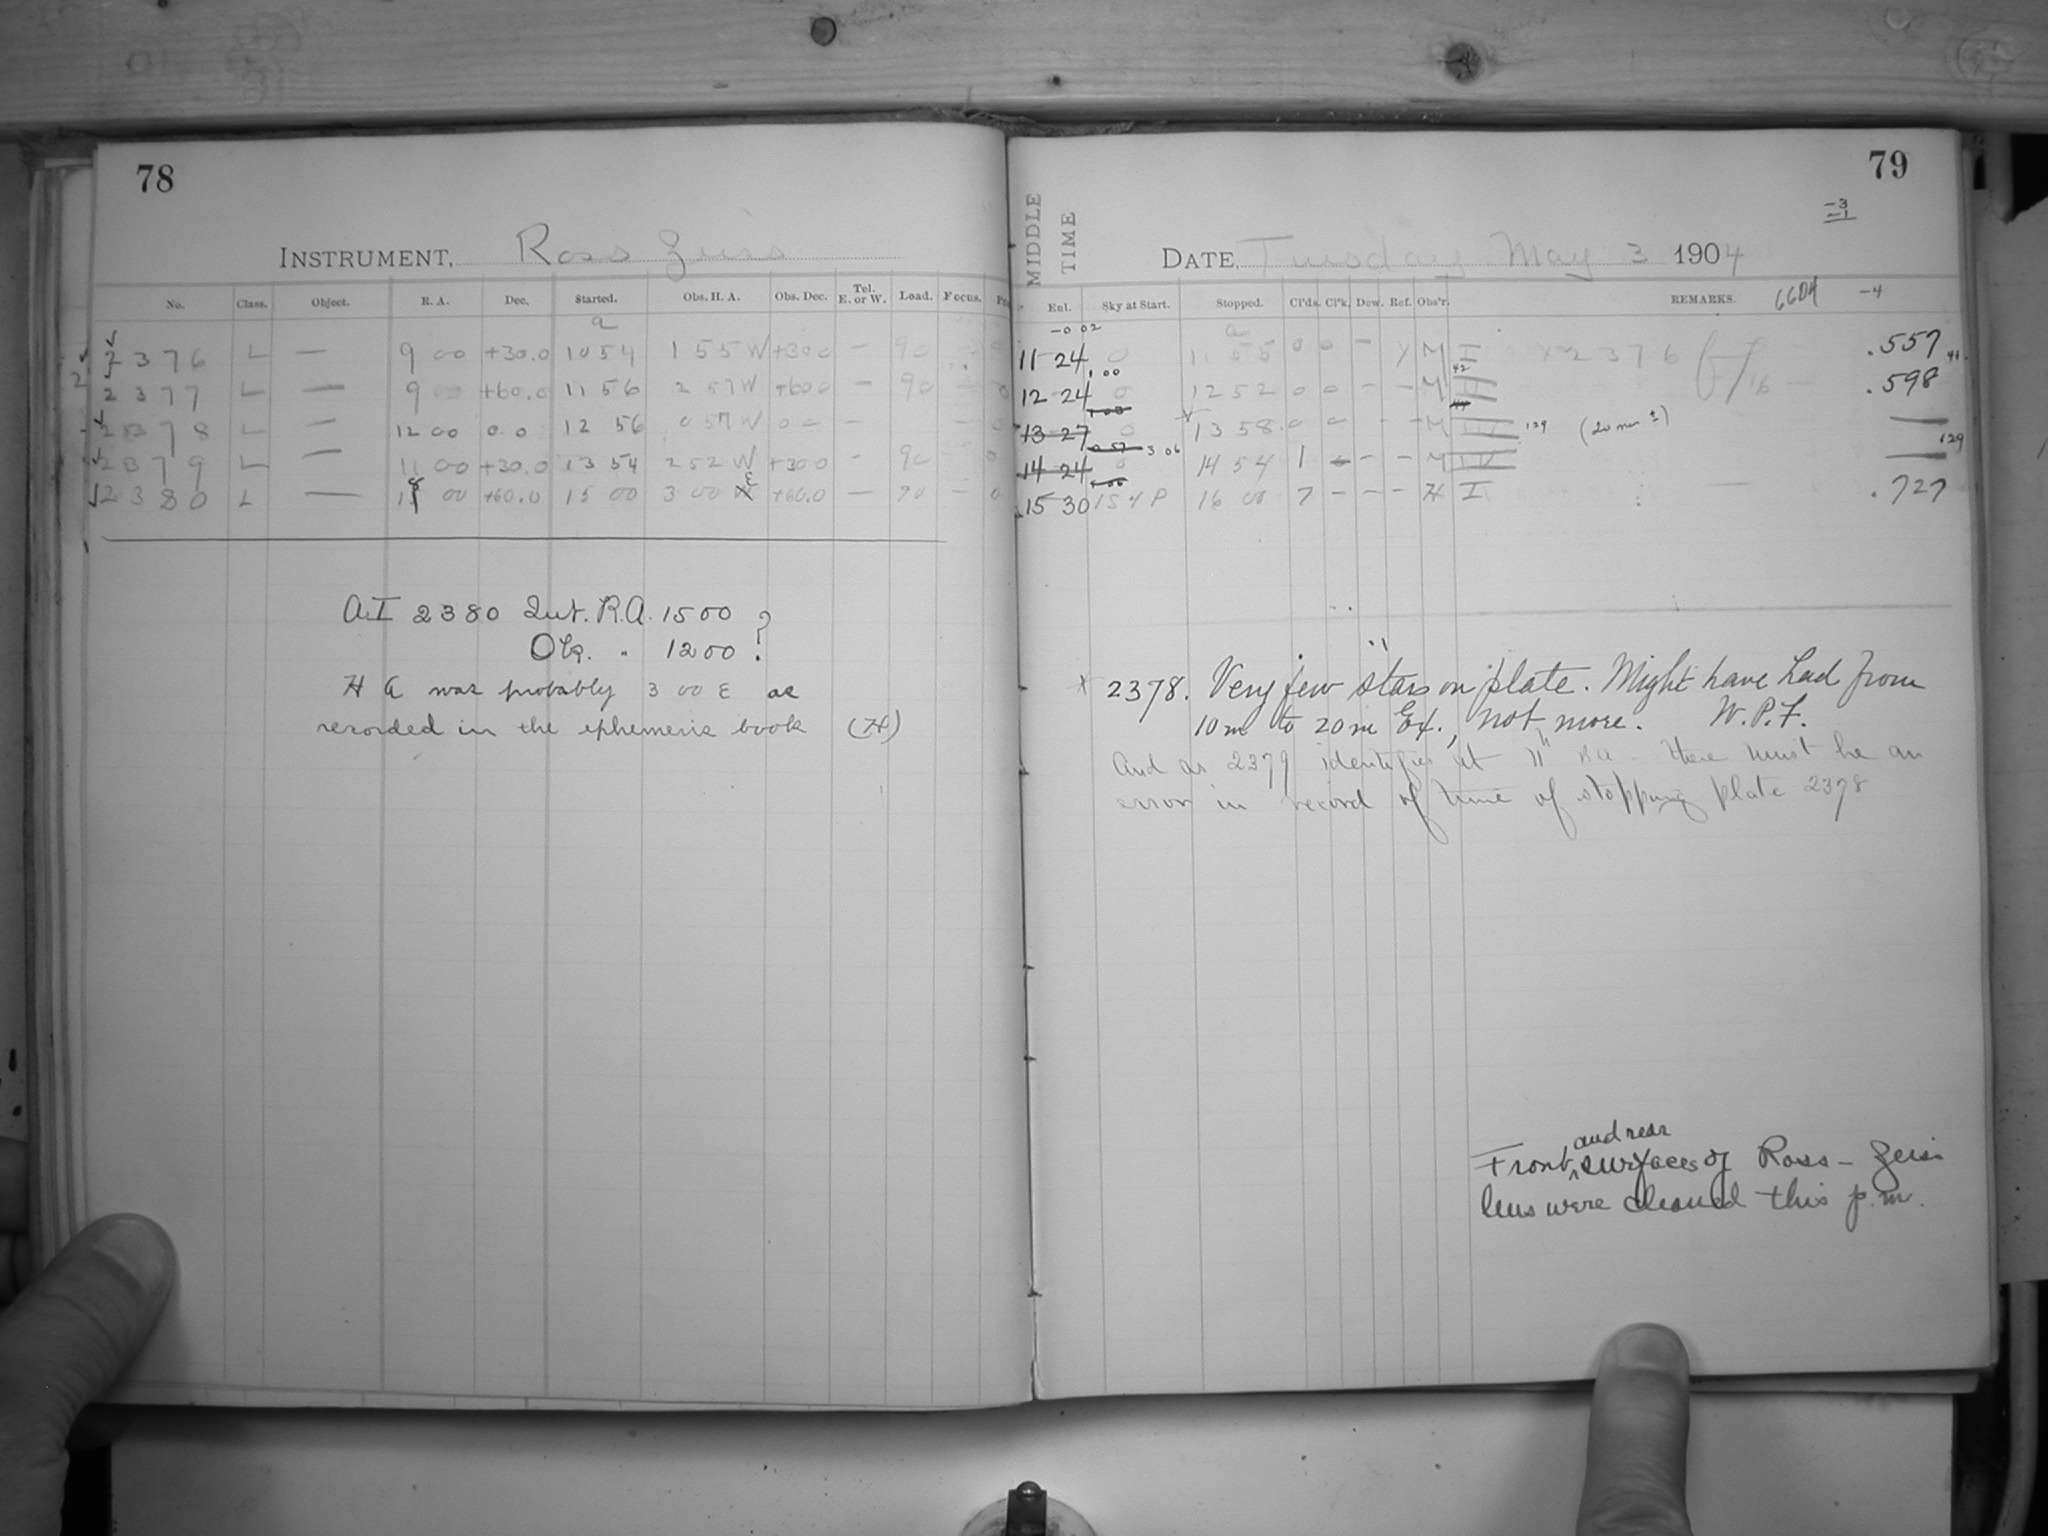 78
INSTRUMENT, Ross Zeiss
No. Class. Object. R. A. Dec. Started. Obs. H. A. Obs. Dec. Tel. E. or W. Load. Focus.
a
2376 L — 9 00 +30.0 10 54 1 55 W +30 0 — 90 — 0
2377 L — 9 00 +60.0 11 56 2 57 W +60 0 — 90 — 0
2378 L — 12 00 0.0 12 56 0 57 W 0 0 — — 0
2379 L — 11 00 +30.0 13 54 2 52 W +30 0 — 90 — 0
2380 L — 18 00 +60.0 15 00 3 00 E +60.0 — 90 — 0
A.I 2380 Int. R.A. 1500 ?
Ok. " 1200 ?
H A was probably 3 00 E as
recorded in the ephemeris book (H)
79
-3
-1
MIDDLE TIME
DATE, Tuesday May 3 1904
Enl. Sky at Start. Stopped. Cl'ds. Cl'k. Dew. Ref. Obs'r. REMARKS. 6604 -4
-0 02 a
11-24 0 11 55 0 0 — M I x 2376 .557 41
1 00 42
12-24 0 12 52 0 0 — — M .598
13-27 0 x 13 58 0 0 — — M 129 (20 min ±) —
3 06
14-24 0 14 54 1 — — — M — 129
15 30 16 00 7 — — — H I .727
x 2378. Very few stars on plate. Might have had from
10m to 20m Ex., not more. W.P.F.
And as 2379 identifies at 11h RA - there must be an
error in record of time of stopping plate 2378
and rear
Front surfaces of Ross-Zeiss
lens were cleaned this p.m.